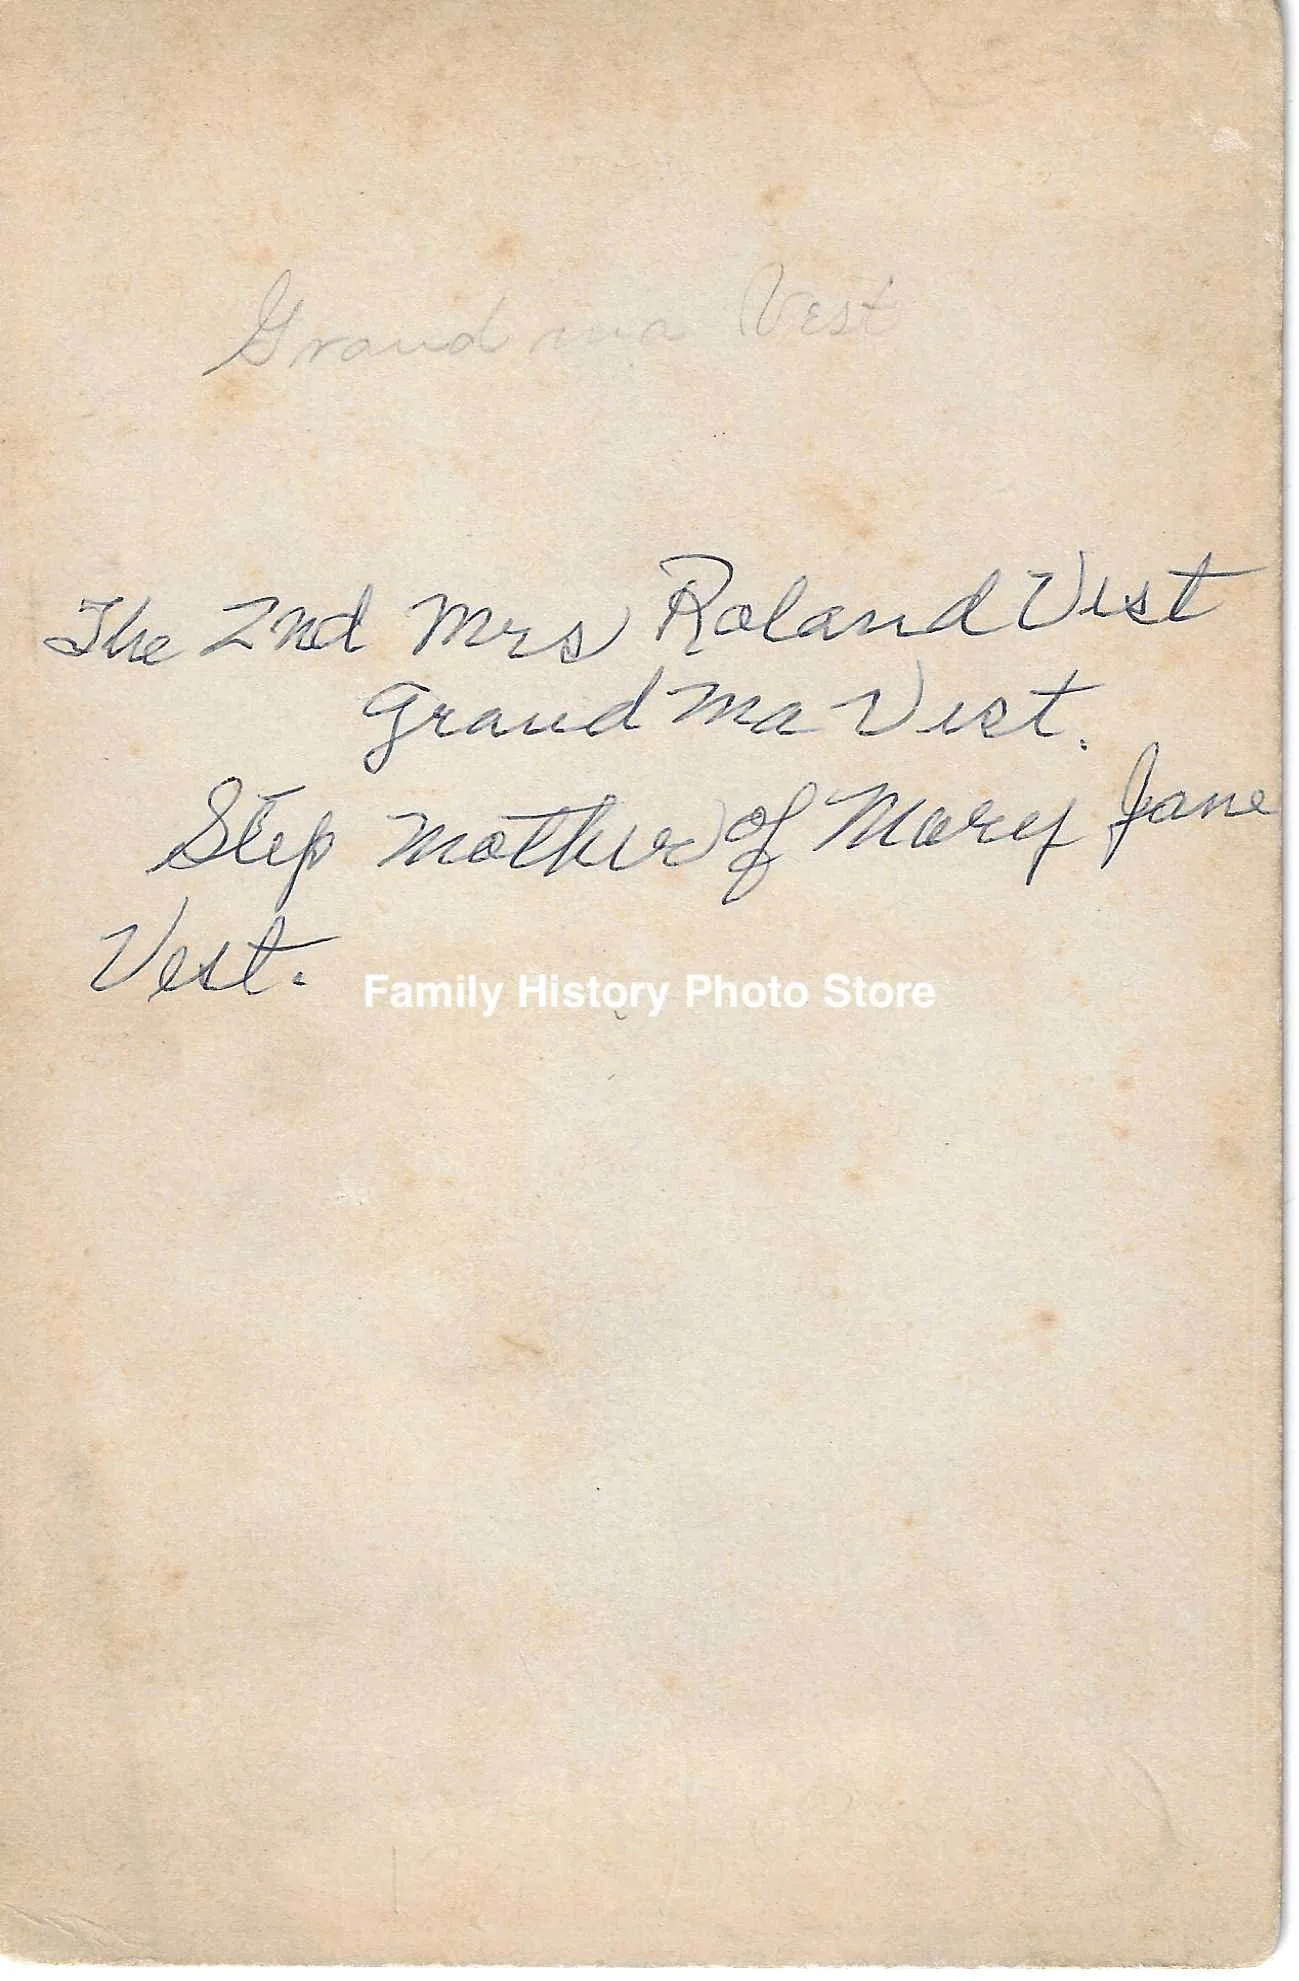 Grand ma Vest
The 2nd Mrs Roland Vest
Grand Ma Vest.
Step Mother of Mary Jane
Vest.
Family History Photo Store